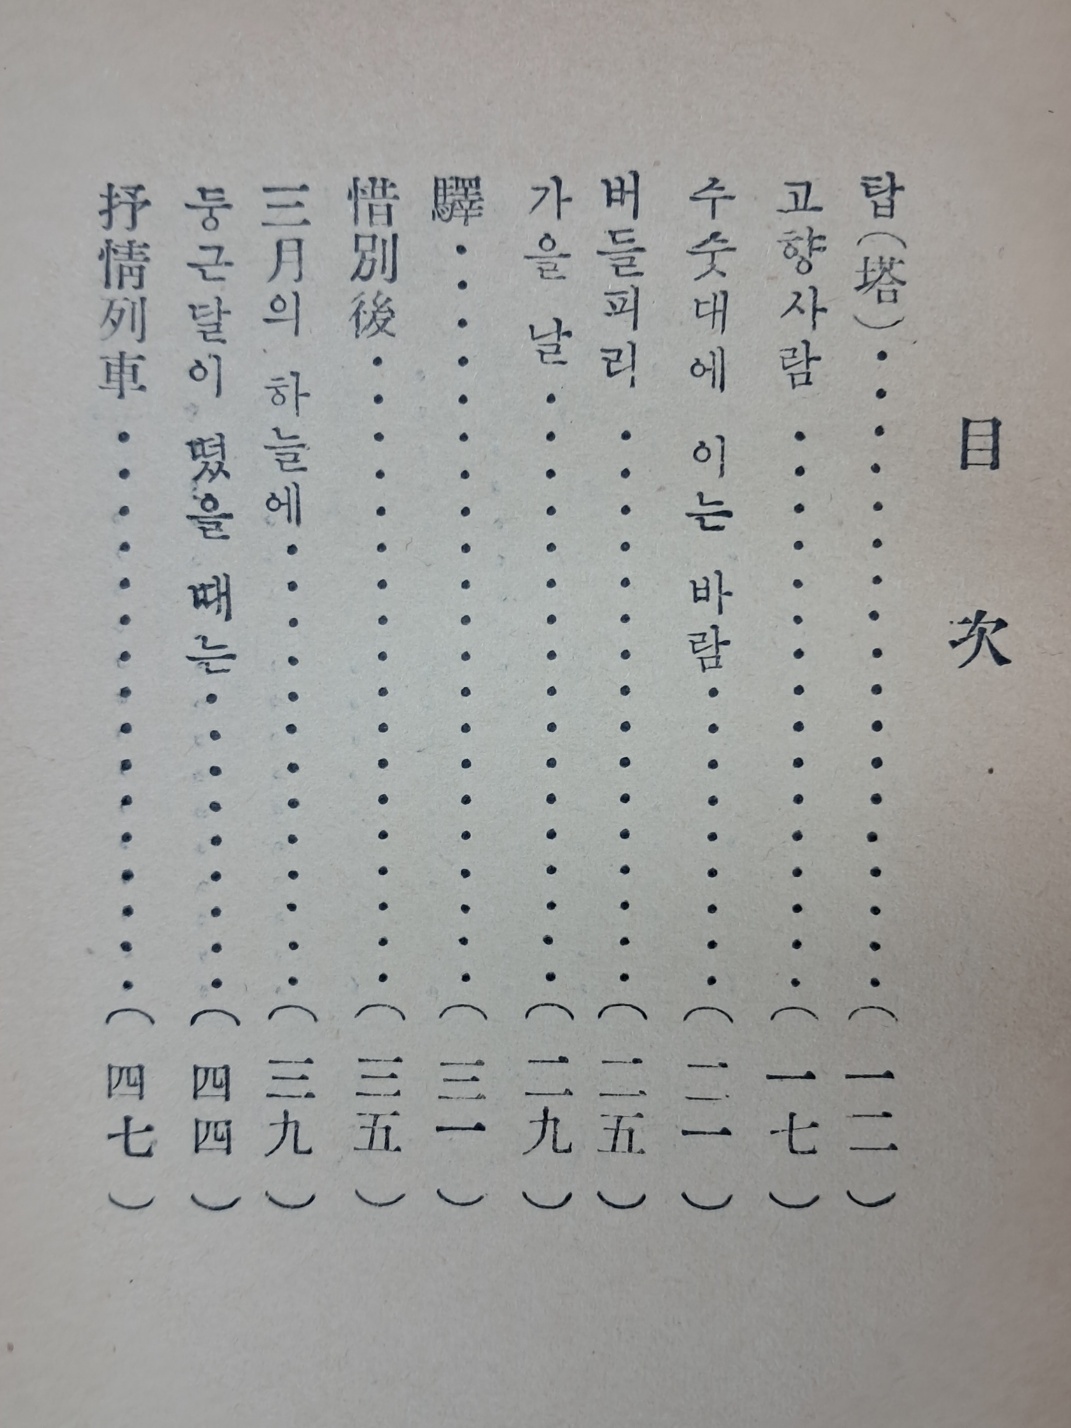 目次
탑(塔)····················(一二)
고향사람················(一七)
수숫대에 이는 바람·········(二一)
버들피리················(二五)
가을 날·················(二九)
驛·····················(三一)
惜別後··················(三五)
三月의 하늘에·············(三九)
둥근달이 떴을 때는·········(四四)
抒情列車················(四七)